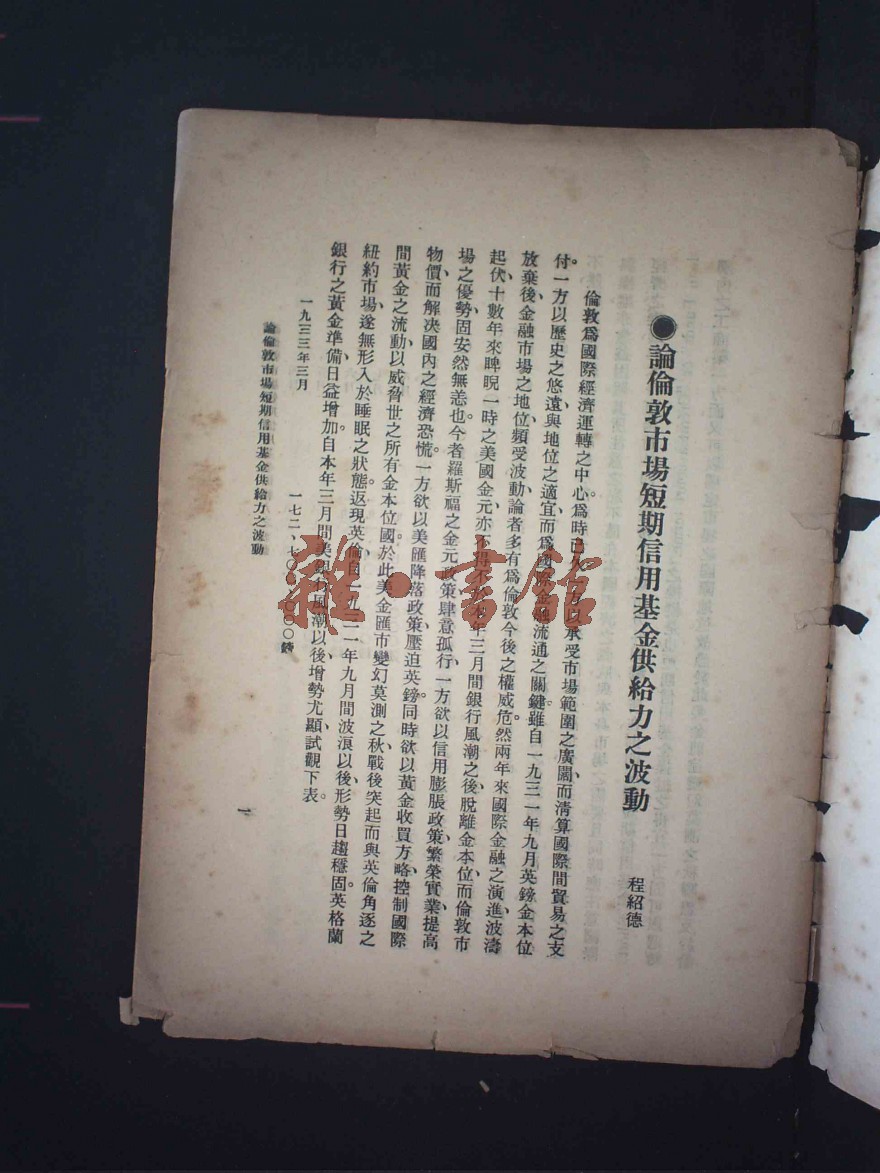 ●論倫敦市場短期信用基金供給力之波動
程紹德
倫敦爲國際經濟運轉之中心。爲時已久一方以承受市場範圍之廣闊而清算國際間貿易之支
付一方以歷史之悠遠、與地位之適宜而爲國際金融流通之關鍵雖自一九三一年九月英鎊金本位
放棄後、金融市場之地位頻受波動、論者多有爲倫敦今後之權威危。然兩年來國際金融之演進、波濤
起伏、十數年來睥睨一時之美國金元、亦不得不於本年三月間銀行風潮之後、脫離金本位、而倫敦市
場之優勢固安然無恙也。今者羅斯福之金元政策肆意孤行、一方欲以信用膨脹政策、繁榮實業、提高
物價、而解決國內之經濟恐慌。一方欲以美匯降落政策、壓迫英鎊。同時欲以黃金收買方略、控制國際
間黃金之流動、以威脅世之所有金本位國。於此美金匯市變幻莫測之秋、戰後突起而與英倫角逐之
紐約市場、遂無形入於睡眠之狀態。返現英倫自一九三一年九月間波浪以後、形勢日趨穩固、英格蘭
銀行之黃金準備、日益增加。自本年三月間美銀行風潮以後、增勢尤顯、試觀下表。
一九三三年三月 一七二、七〇〇、〇〇〇鎊
論倫敦市場短期信用基金供給力之波動 一
雜·書館